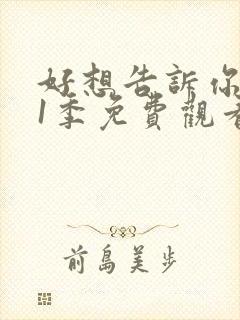 好想告訴你
1季免費觀看
前島美步